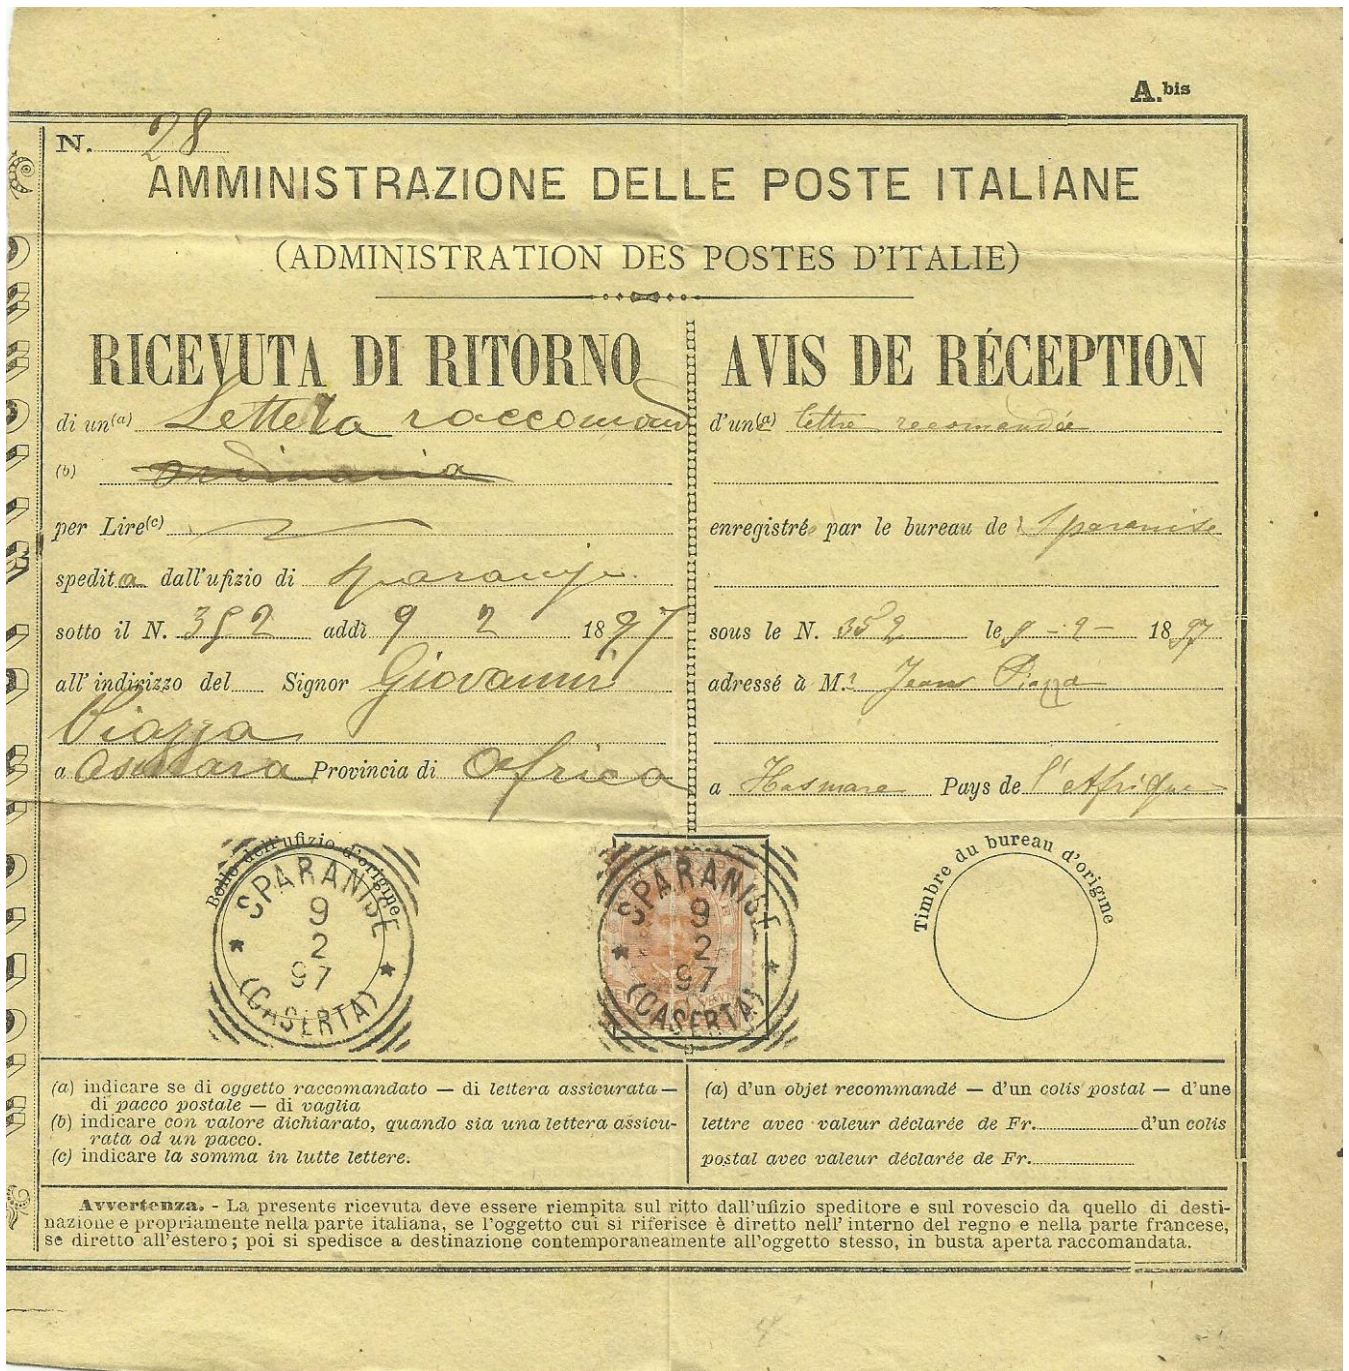 A.bis
N. 28
AMMINISTRAZIONE DELLE POSTE ITALIANE
(ADMINISTRATION DES POSTES D'ITALIE)
RICEVUTA DI RITORNO
di un(a) Lettera raccomand
(b) ordinaria
per Lire(c)
spedita dall'ufizio di Sparanise
sotto il N. 352 addì 9 2 1897
all'indirizzo del Signor Giovanni
Piazza
a Asmara Provincia di Africa
AVIS DE RÉCEPTION
d'un(a) lettre recomandée
enregistré par le bureau de Sparanise
sous le N. 352 le 9-2- 1897
adressé à M.r Jean Piazza
a Hasmara Pays de l'Afrique
Bollo dell'ufizio d'origine
SPARANISE
9
2
97
(CASERTA)
SPARANISE
9
2
97
(CASERTA)
Timbre du bureau d'origine
(a) indicare se di oggetto raccomandato — di lettera assicurata —
di pacco postale — di vaglia
(b) indicare con valore dichiarato, quando sia una lettera assicu-
rata od un pacco.
(c) indicare la somma in lutte lettere.
(a) d'un objet recommandé — d'un colis postal — d'une
lettre avec valeur déclarée de Fr. d'un colis
postal avec valeur déclarée de Fr.
Avvertenza. - La presente ricevuta deve essere riempita sul ritto dall'ufizio speditore e sul rovescio da quello di desti-
nazione e propriamente nella parte italiana, se l'oggetto cui si riferisce è diretto nell'interno del regno e nella parte francese,
se diretto all'estero; poi si spedisce a destinazione contemporaneamente all'oggetto stesso, in busta aperta raccomandata.